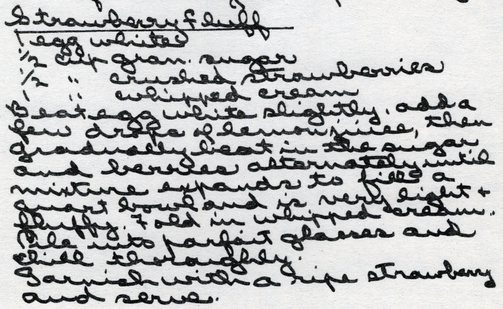 Strawberry Fluff
1 egg white
1/2 cup gran. sugar
1/2 " crushed strawberries
1 " whipped cream
Beat egg white slightly, add a
few drops of lemon juice, then
gradually beat in the sugar
and berries alternately until
mixture expands to fill a
quart bowl and is very light +
fluffy. Fold in whipped cream.
Pile into parfait glasses and
chill thoroughly.
Garnish with a ripe strawberry
and serve.